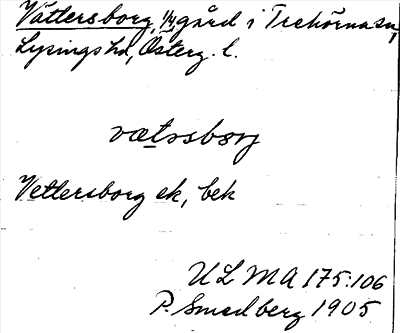 Vättlersborg, 1/4 gård i Trehörna sn,
Lysings hd, Österg. l.
vætəsbørj
Vettlersborg ek, bek
ULMA 175:106
P. Smedberg 1905